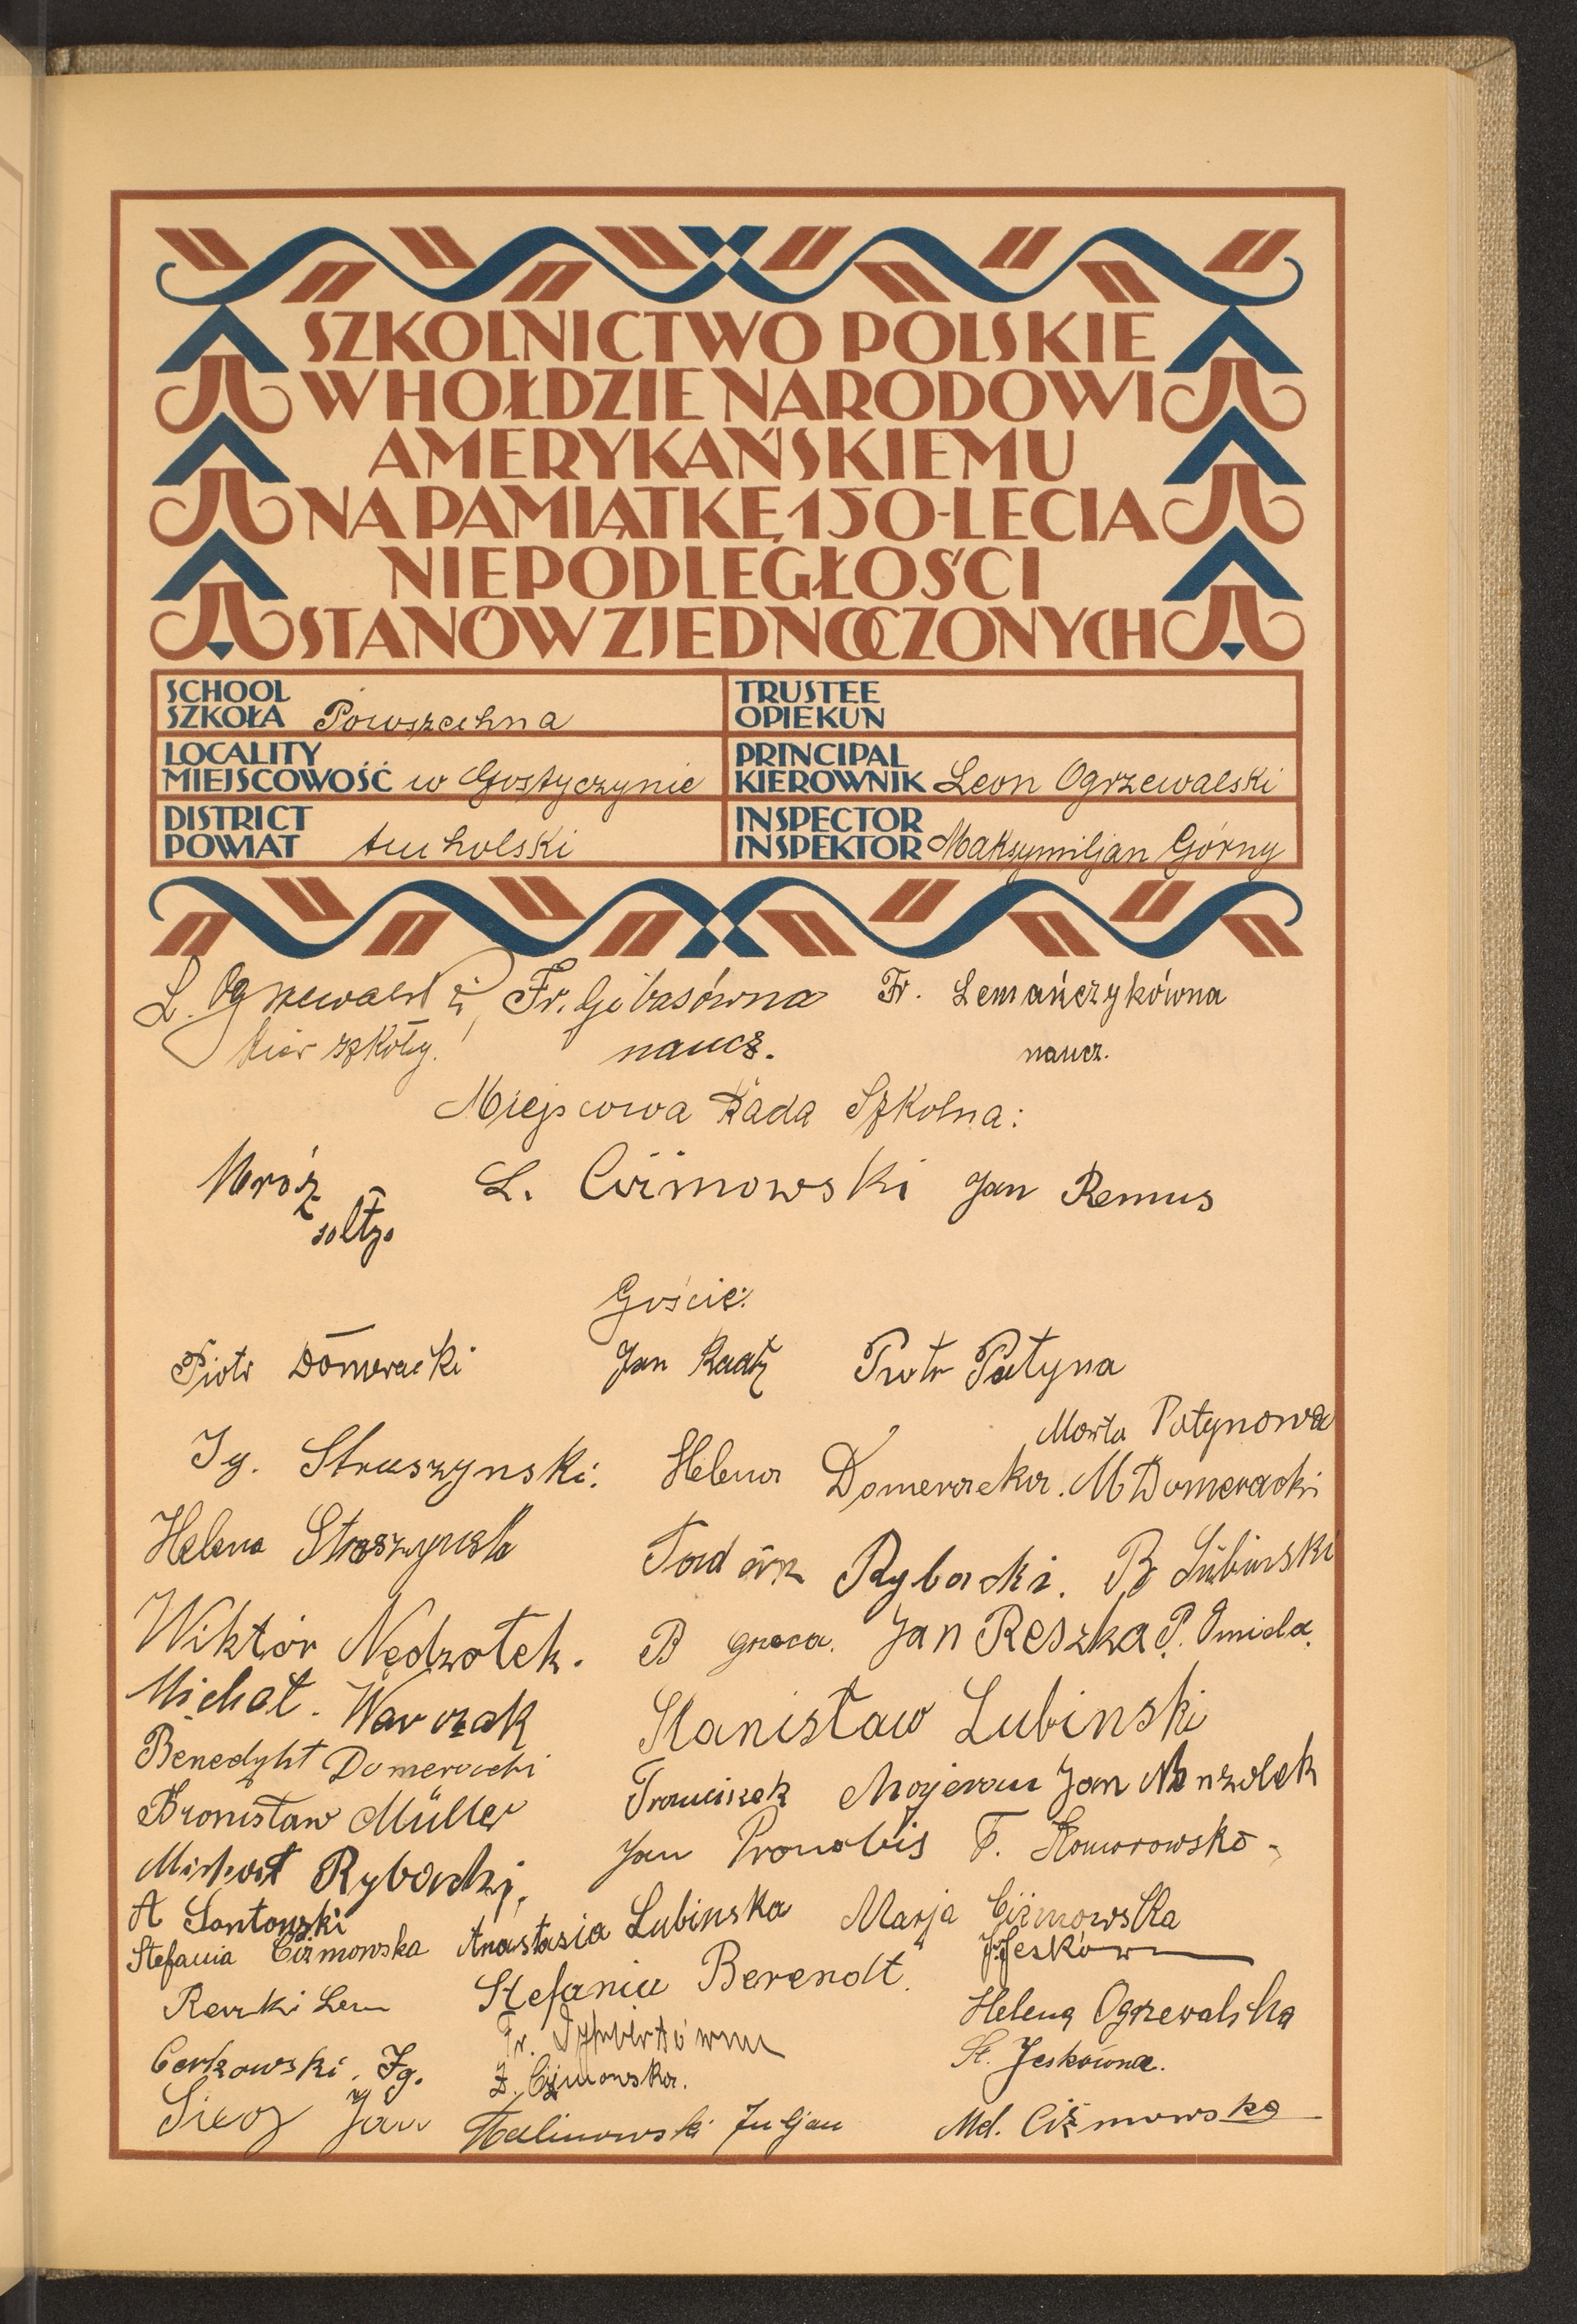 SZKOLNICTWO POLSKIE
W HOŁDZIE NARODOWI
AMERYKAŃSKIEMU
NA PAMIĄTKĘ 150-LECIA
NIEPODLEGŁOŚCI
STANÓW ZJEDNOCZONYCH
SCHOOL
SZKOŁA Powszechna
TRUSTEE
OPIEKUN
LOCALITY
MIEJSCOWOŚĆ w Gostyczynie
PRINCIPAL
KIEROWNIK Leon Ogrzewalski
DISTRICT
POWIAT tucholski
INSPECTOR
INSPEKTOR Maksymiljan Górny
L. Ogrzewalski Fr. Gibasówna Fr. Lemańczykówna
kier szkoły. naucz. naucz.
Miejscowa Rada Szkolna:
Mróz L. Ciżmowski Jan Remus
sołtys
Goście:
Piotr Domeracki Jan Raatz Piotr Patyna
Marta Patynowa
Ig. Straszynski. Helena Domeracka. M Domeracki
Helena Straszynska Rybacki. B Lubinski
Wiktor Nędzołek. B Jan Reszka P.
Michał. Wawrzak Stanisław Lubinski
Benedykt Domeracki
Franciszek Jan
Bronisław Müller
Jan Pronobis F. Komorowski
Michał Rybacki,
A Lontowski Anastasia Lubinska Marja Ciżmowska
Stefania Ciżmowska J. Jesków
Stefania Berendt.
Helena Ogrzewalska
Fr.
Cerkowski. Ig. Z. Ciżmowska. St. Jeskówna.
Jan Malinowski Juljan Md. Ciżmowska